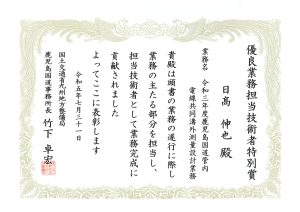 優良業務担当技術者特別賞
日高 伸也 殿
業務名 令和三年度鹿児島国道管内
電線共同溝外測量設計業務
貴殿は頭書の業務の遂行に際し
業務の主たる部分を担当し、
担当技術者として業務完成に
貢献されました
よってここに表彰します
令和五年七月三十一日
国土交通省九州地方整備局
鹿児島国道事務所長 竹下 卓宏